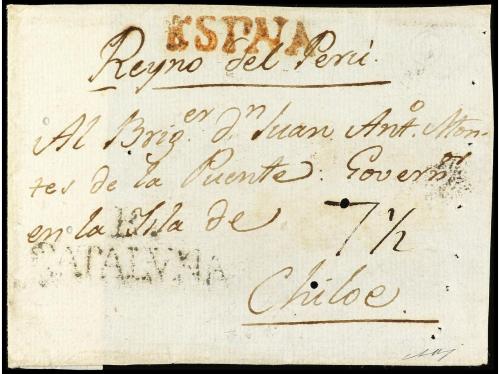 ESPNA
Reyno del Perú
Al Brig.er d.n Juan Ant.o Mon-
tes de la Puente. Govern.or
en la Isla de 7½
CATALVNA
Chiloe.